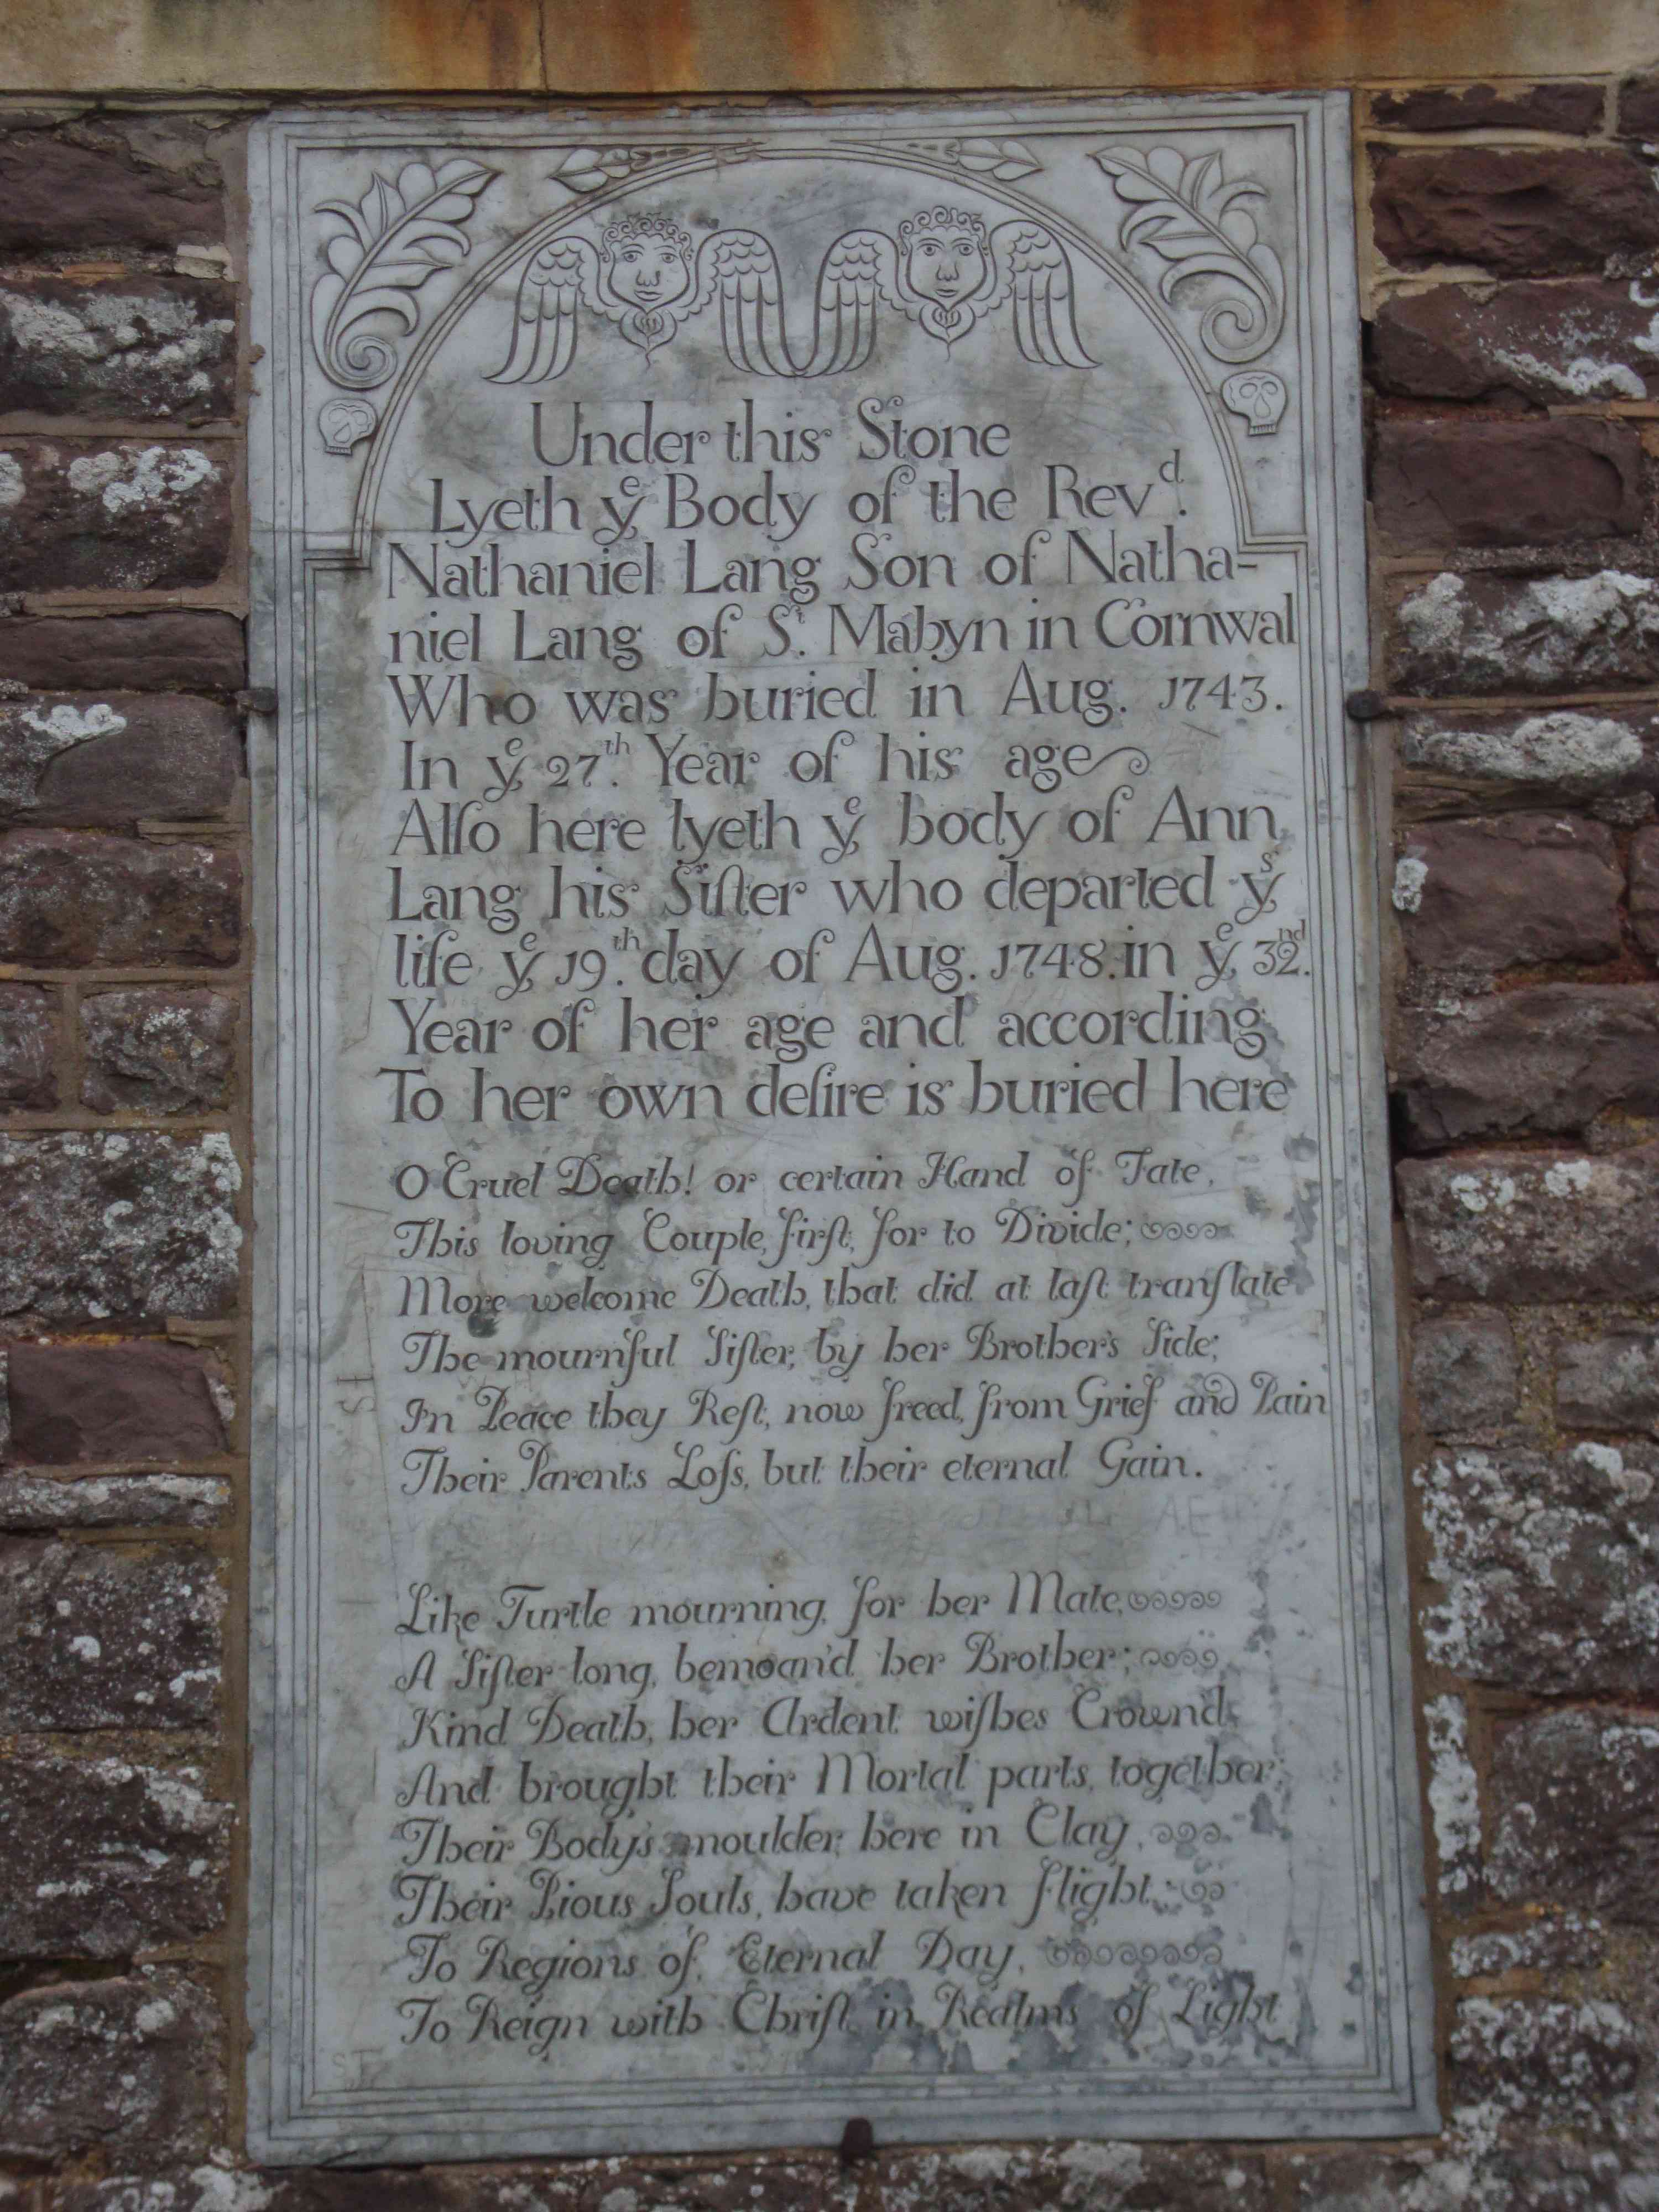 Under this Stone
Lyeth yͤ Body of the Revᵈ.
Nathaniel Lang Son of Natha-
niel Lang of Sᵗ. Mabyn in Cornwal
Who was buried in Aug. 1743.
In yͤ 27ᵗʰ. Year of his age
Alſo here lyeth yͤ body of Ann
Lang his Siſter who departed yˢ
life yͤ 19ᵗʰ. day of Aug. 1748. in yͤ 32ⁿᵈ.
Year of her age and according
To her own deſire is buried here
O Cruel Death! or certain Hand of Fate,
This loving Couple, firſt, for to Divide;
More welcome Death, that did at laſt tranſlate
The mournful Siſter, by her Brother's Side;
In Peace they Reſt, now freed, from Grief and Pain
Their Parents Loſs, but their eternal Gain.
Like Turtle mourning, for her Mate,
A Siſter long, bemoan'd her Brother;
Kind Death, her Ardent wiſhes Crown'd,
And brought their Mortal parts, together;
Their Body's moulder, here in Clay,
Their Pious Souls, have taken flight;
To Regions of, Eternal Day,
To Reign with Chriſt in Realms of Light